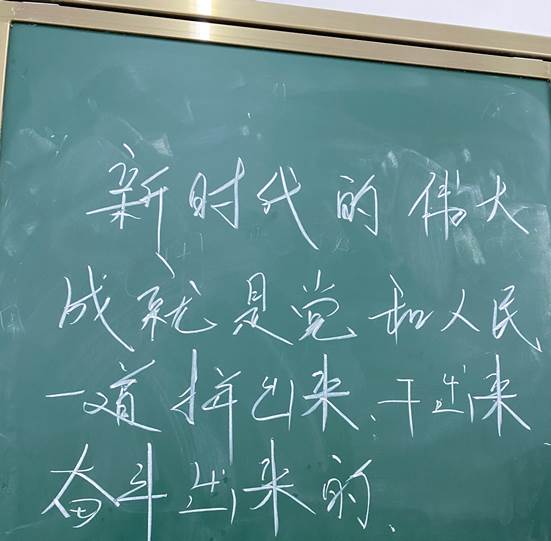 新时代的伟大
成就是党和人民
一道拼出来、干出来
奋斗出来的、